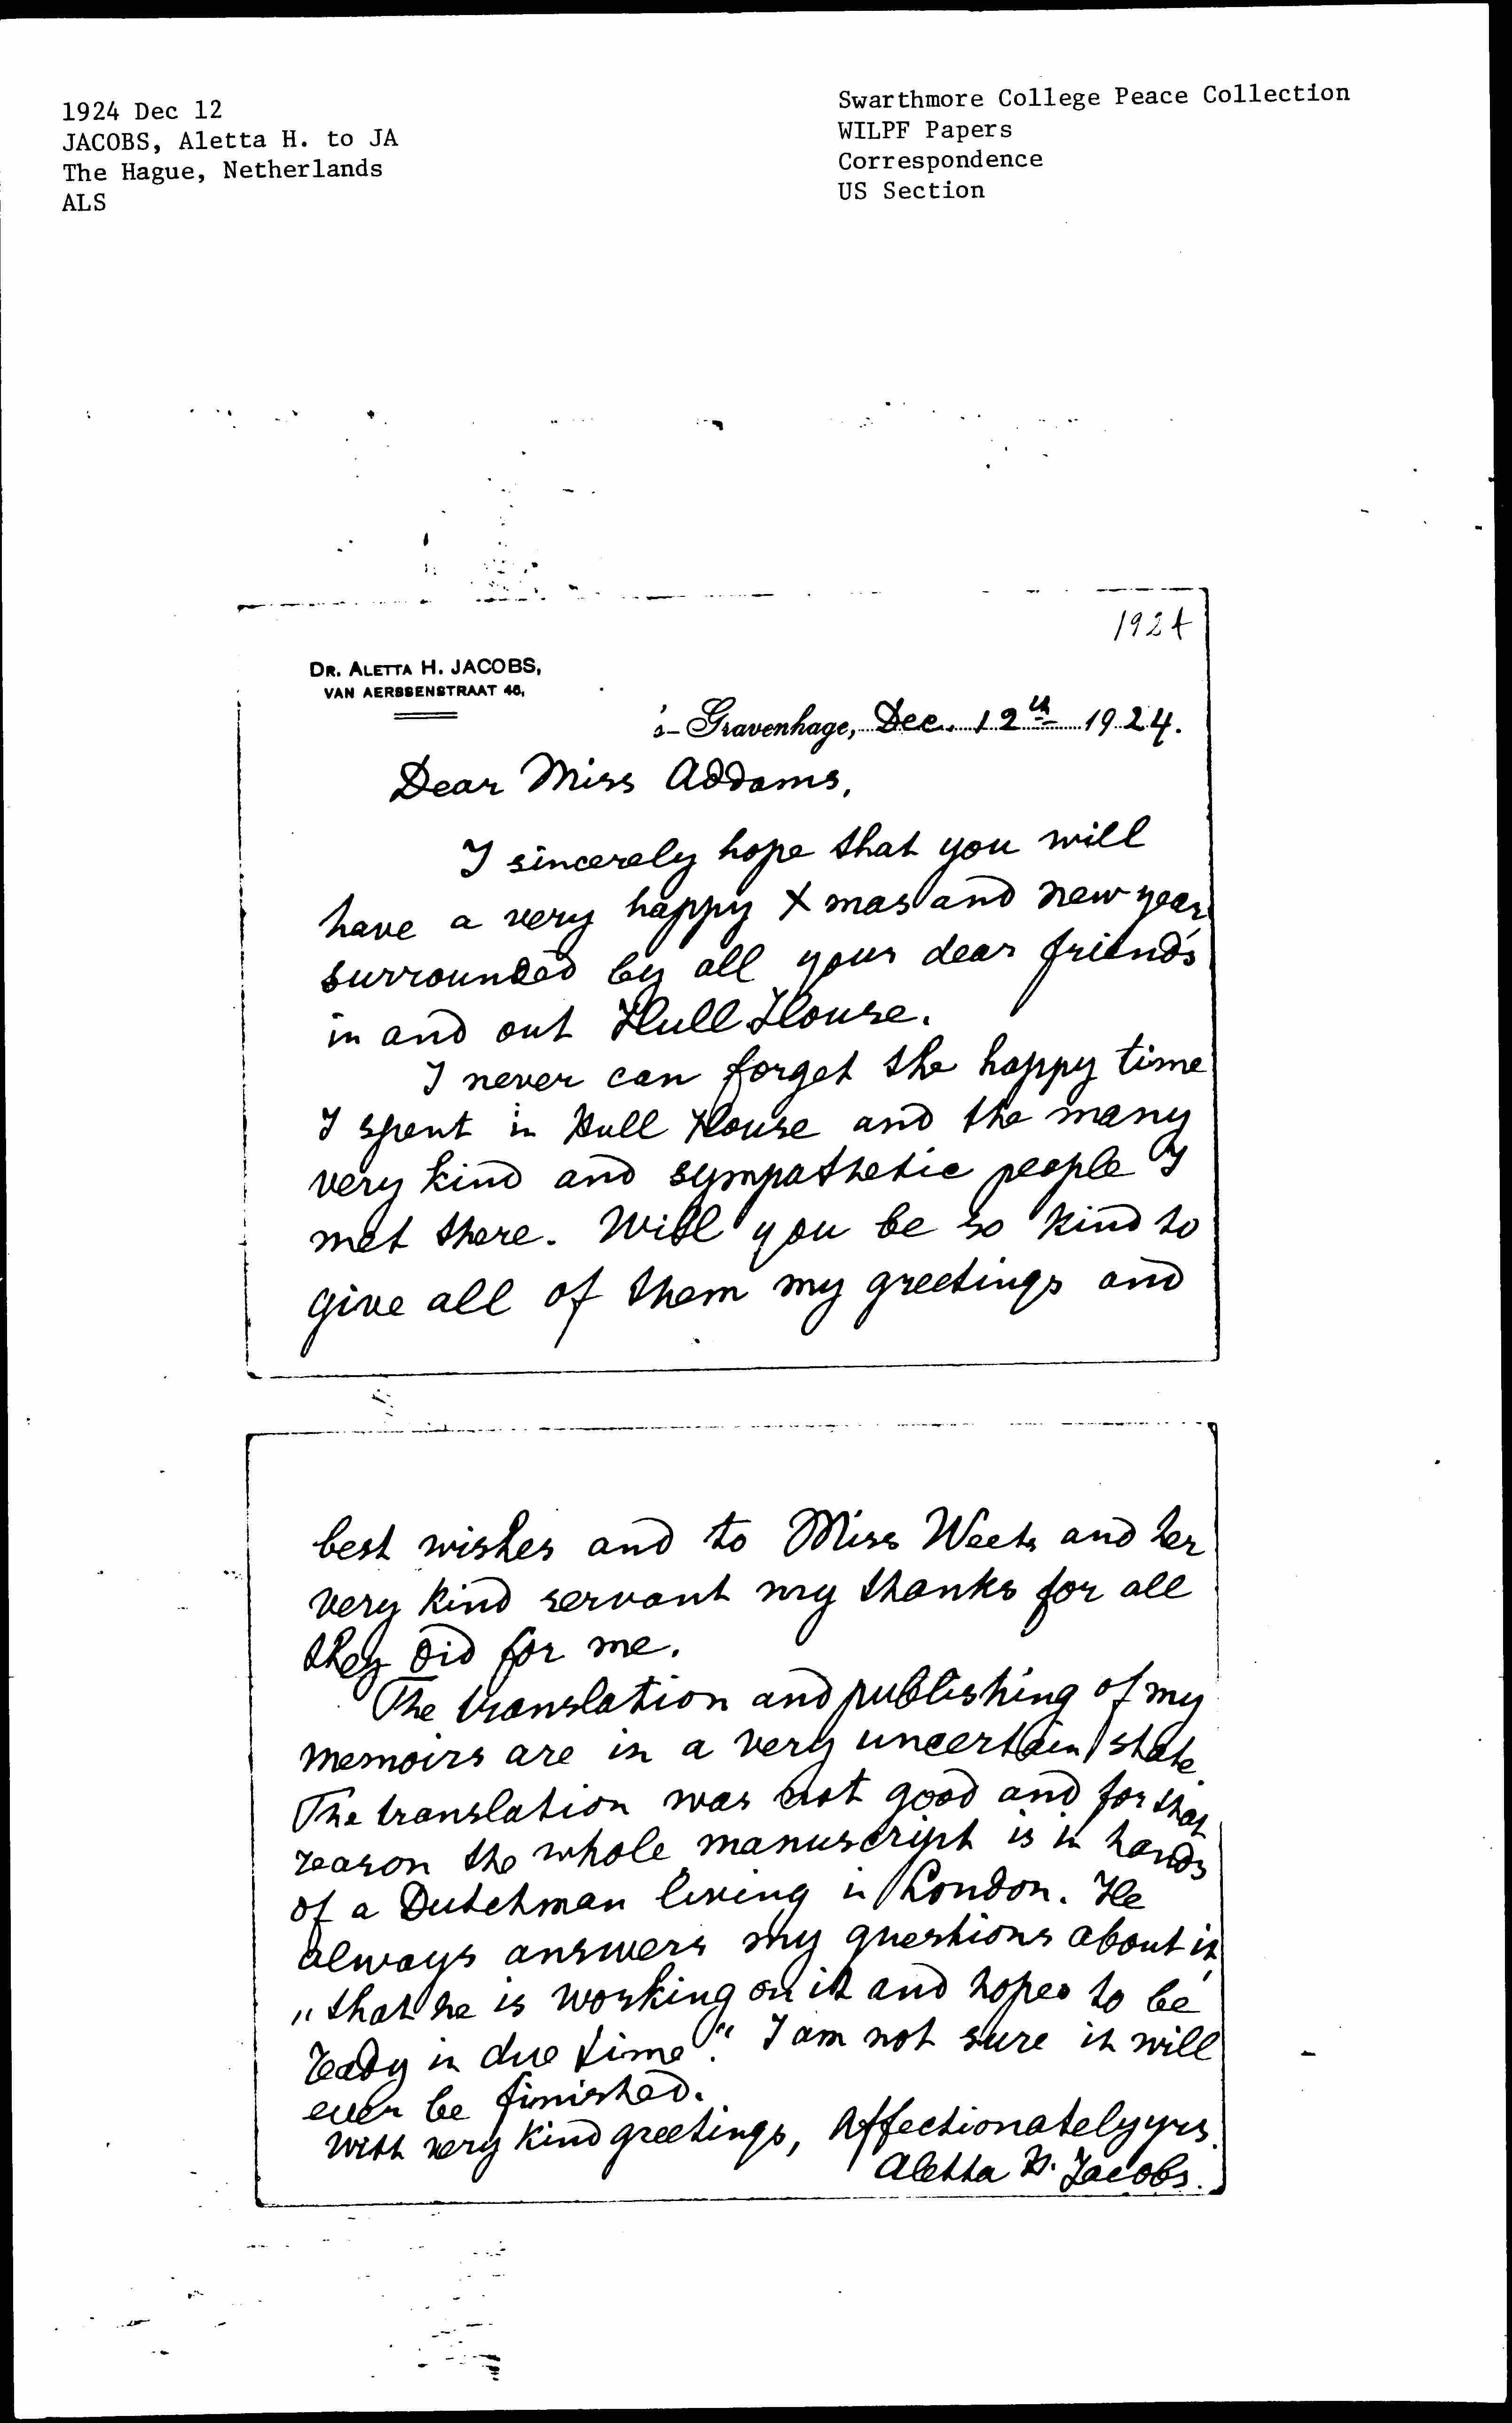 1924 Dec 12
JACOBS, Aletta H. to JA
The Hague, Netherlands
ALS
Swarthmore College Peace Collection
WILPF Papers
Correspondence
US Section
1924
DR. ALETTA H. JACOBS,
VAN AERSSENSTRAAT 46,
's-Gravenhage, Dec. 12th 1924.
Dear Miss Addams,
I sincerely hope that you will
have a very happy Xmas and new year,
surrounded by all your dear friends
in and out Hull House.
I never can forget the happy time
I spent in Hull House and the many
very kind and sympathetic people I
met there. Will you be so kind to
give all of them my greetings and
best wishes and to Miss and her
very kind servant my thanks for all
they did for me.
The translation and publishing of my
memoirs are in a very uncertain state.
The translation was not good and for that
reason the whole manuscript is in hands
of a Dutchman living in London. He
always answers my questions about it,
„that he is working on it and hopes to be
ready in due time". I am not sure it will
ever be finished.
With very kind greetings, Affectionately yrs.
Aletta H. Jacobs.